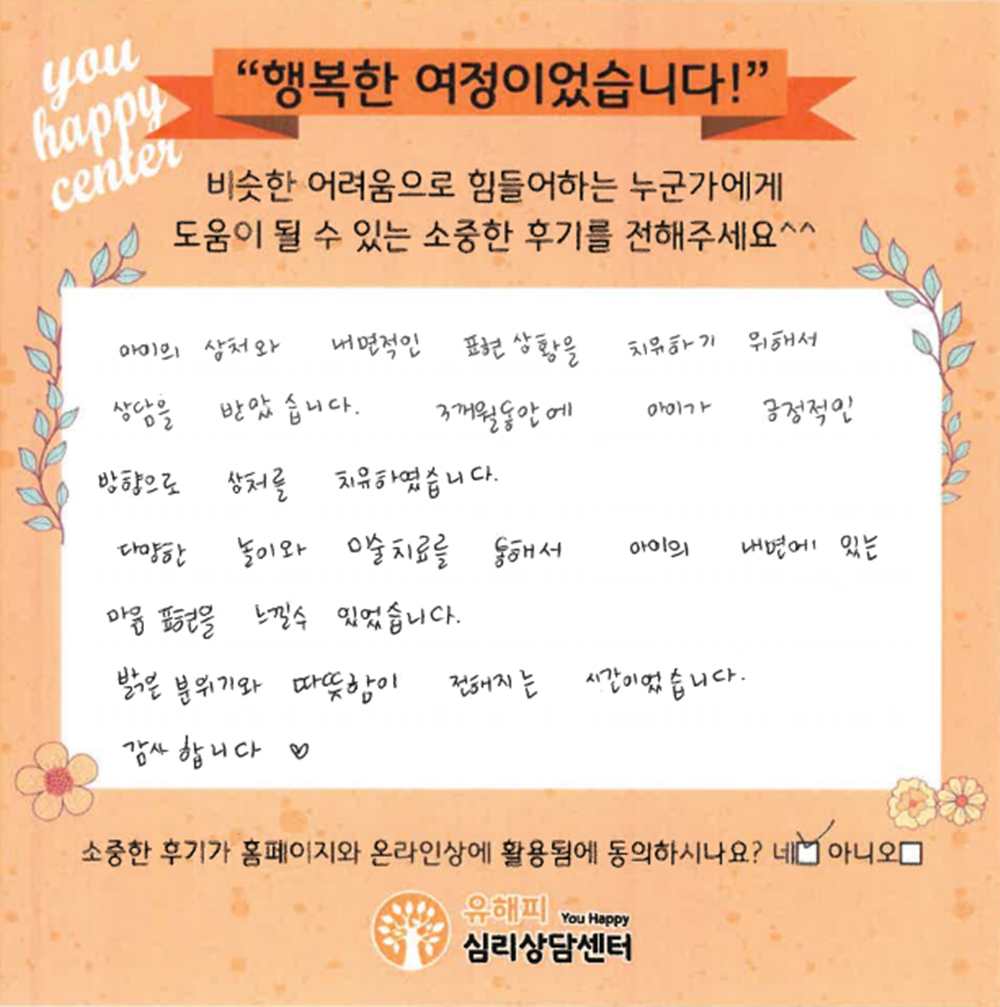 you
happy
center
“행복한 여정이었습니다!”
비슷한 어려움으로 힘들어하는 누군가에게
도움이 될 수 있는 소중한 후기를 전해주세요^^
아이의 상처와 내면적인 표현 상황을 치유하기 위해서
상담을 받았습니다. 3개월동안에 아이가 긍정적인
방향으로 상처를 치유하였습니다.
다양한 놀이와 미술치료를 통해서 아이의 내면에 있는
마음 표현을 느낄수 있었습니다.
밝은 분위기와 따뜻함이 전해지는 시간이었습니다.
감사합니다 ♡
소중한 후기가 홈페이지와 온라인상에 활용됨에 동의하시나요? 네☑ 아니오☐
유해피 You Happy
심리상담센터